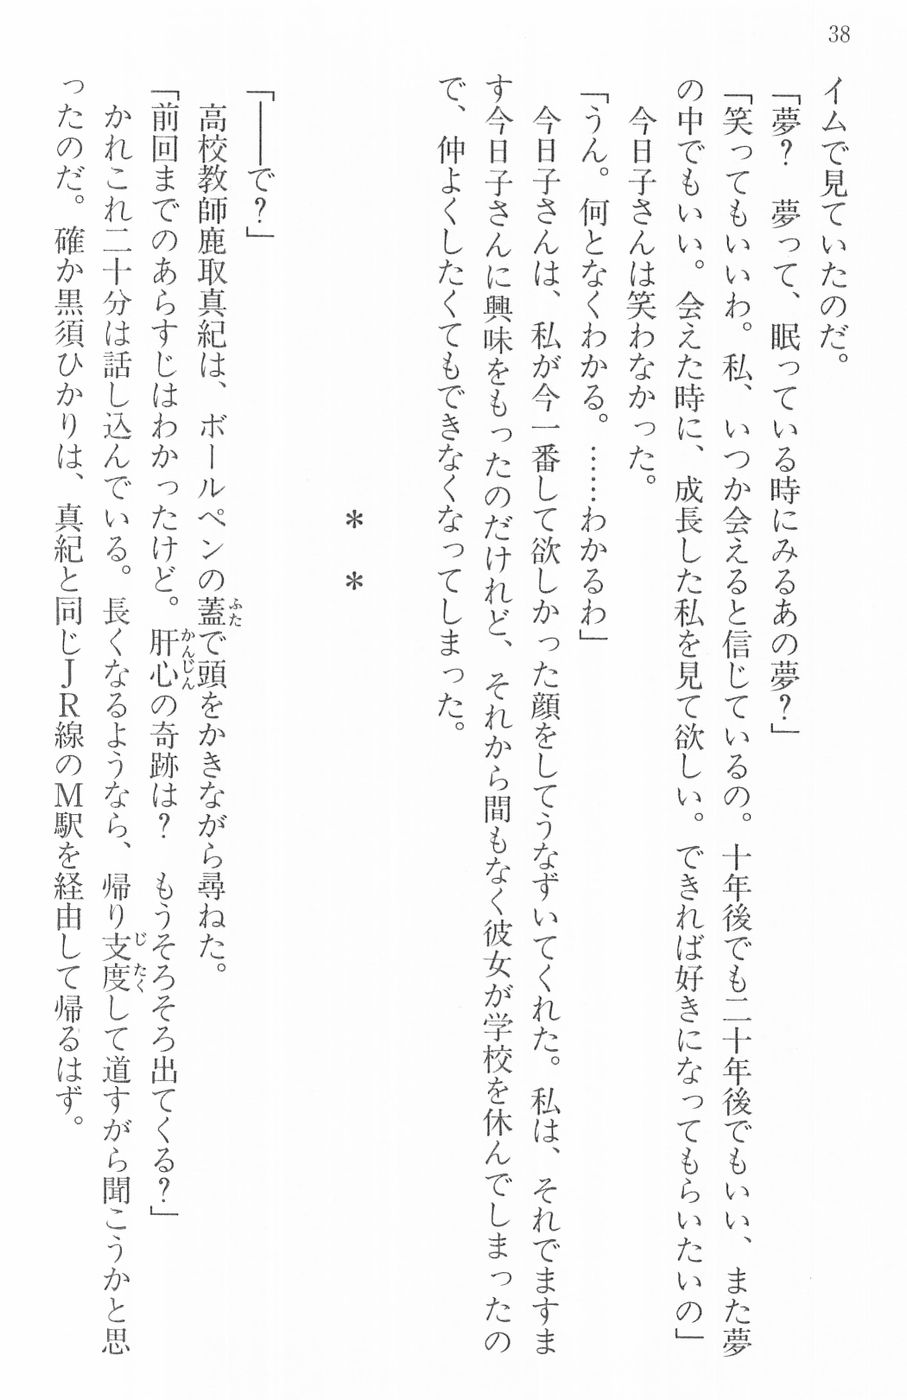 38
イムで見ていたのだ。
「夢？　夢って、眠っている時にみるあの夢？」
「笑ってもいいわ。私、いつか会えると信じているの。十年後でも二十年後でもいい、また夢
の中でもいい。会えた時に、成長した私を見て欲しい。できれば好きになってもらいたいの」
　今日子さんは笑わなかった。
「うん。何となくわかる。……わかるわ」
　今日子さんは、私が今一番して欲しかった顔をしてうなずいてくれた。私は、それでますま
す今日子さんに興味をもったのだけれど、それから間もなく彼女が学校を休んでしまったの
で、仲よくしたくてもできなくなってしまった。
＊　＊
「――で？」
　高校教師鹿取真紀は、ボールペンの蓋ふたで頭をかきながら尋ねた。
「前回までのあらすじはわかったけど。肝心かんじんの奇跡は？　もうそろそろ出てくる？」
　かれこれ二十分は話し込んでいる。長くなるようなら、帰り支度じたくして道すがら聞こうかと思
ったのだ。確か黒須ひかりは、真紀と同じＪＲ線のＭ駅を経由して帰るはず。